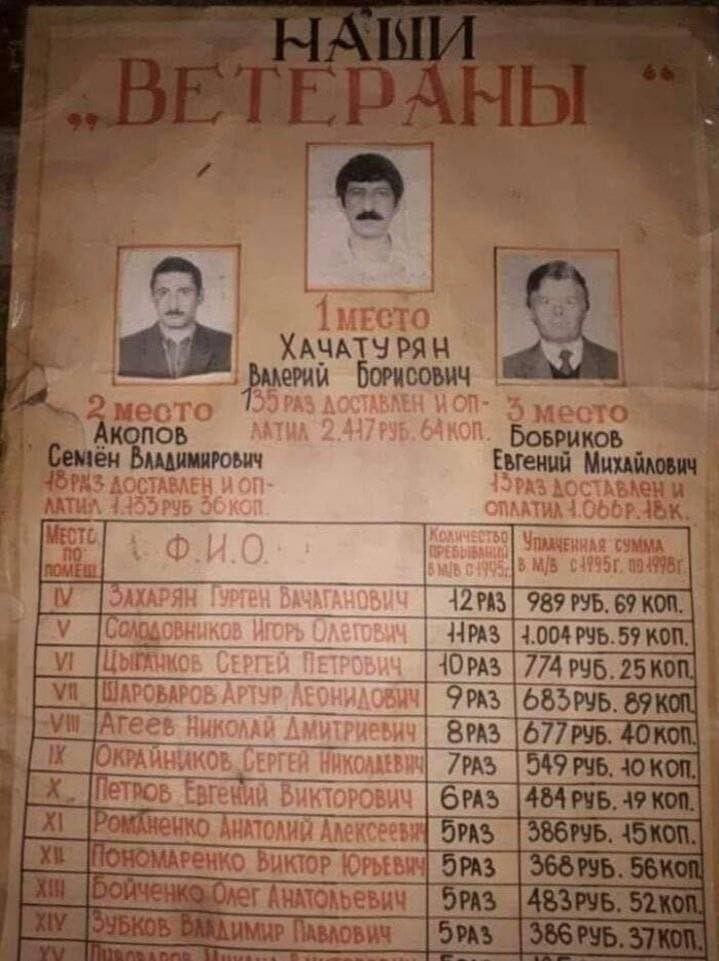 НАШИ
„ВЕТЕРАНЫ“
1 место
ХАЧАТУРЯН
Валерий Борисович
135 РАЗ ДОСТАВЛЕН И ОП-
ЛАТИЛ 2.417 РУБ. 64 КОП.
2 место
Акопов
Семён Владимирович
18 РАЗ ДОСТАВЛЕН И ОП-
ЛАТИЛ 1.133 РУБ 36 КОП.
3 место
Бобриков
Евгений Михайлович
13 РАЗ ДОСТАВЛЕН И
ОПЛАТИЛ 1.066 Р. 18 К.
Место по помещ. Ф.И.О. Количество пребываний в м/в с 1995г. Уплаченная сумма в м/в с 1995г. по 1998г.
IV Захарян Гурген Вачаганович 12 РАЗ 989 РУБ. 69 КОП.
V Солодовников Игорь Олегович 11 РАЗ 1.004 РУБ. 59 КОП.
VI Цыганков Сергей Петрович 10 РАЗ 774 РУБ. 25 КОП.
VII Шароваров Артур Леонидович 9 РАЗ 683 РУБ. 89 КОП
VIII Агеев Николай Дмитриевич 8 РАЗ 677 РУБ. 40 КОП.
IX Окрайников Сергей Николаевич 7 РАЗ 549 РУБ. 10 КОП.
X. Петров Евгений Викторович 6 РАЗ 484 РУБ. 19 КОП.
XI Романенко Анатолий Алексеевич 5 РАЗ 386 РУБ. 15 КОП.
XII Пономаренко Виктор Юрьевич 5 РАЗ 368 РУБ. 56 КОП
XIII Бойченко Олег Анатольевич 5 РАЗ 483 РУБ. 52 КОП.
XIV Зубков Владимир Павлович 5 РАЗ 386 РУБ. 37 КОП.
XV Пивоваров Михаил